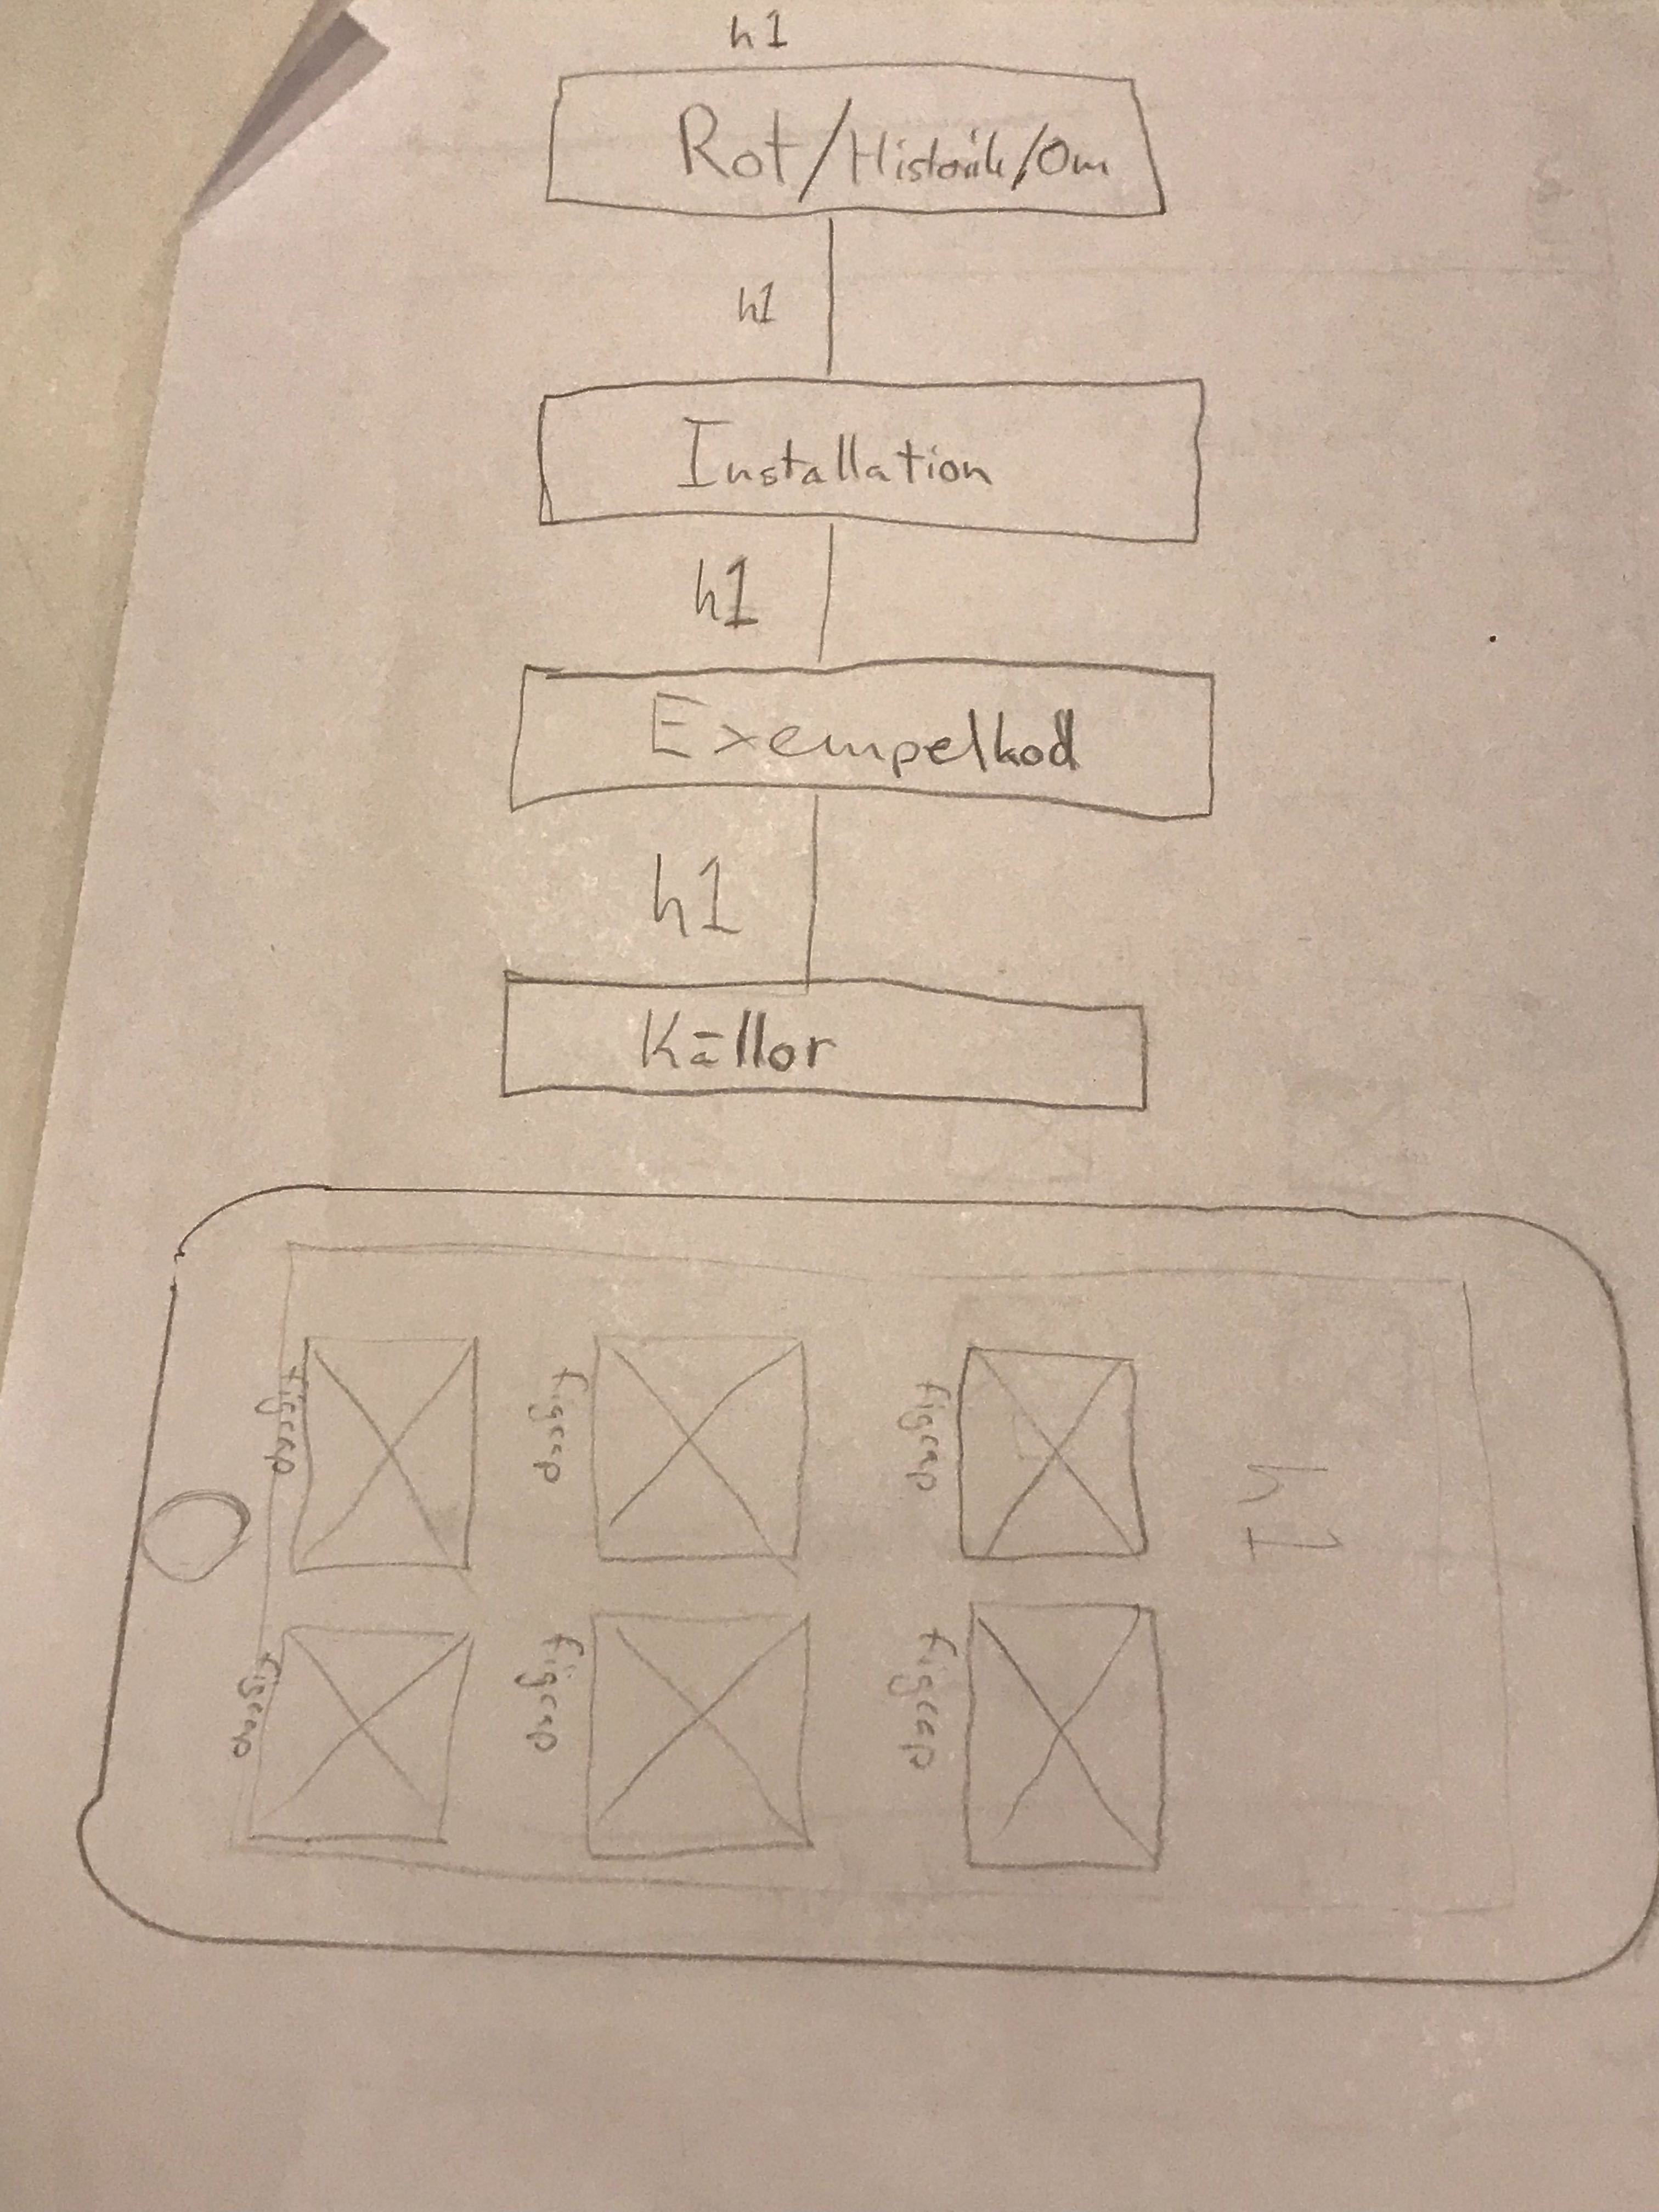 h1
Rot/Historik/Om
h1
Installation
h1
Exempelkod
h1
Källor
h1
figcap
figcap
figcap
figcap
figcap
figcap